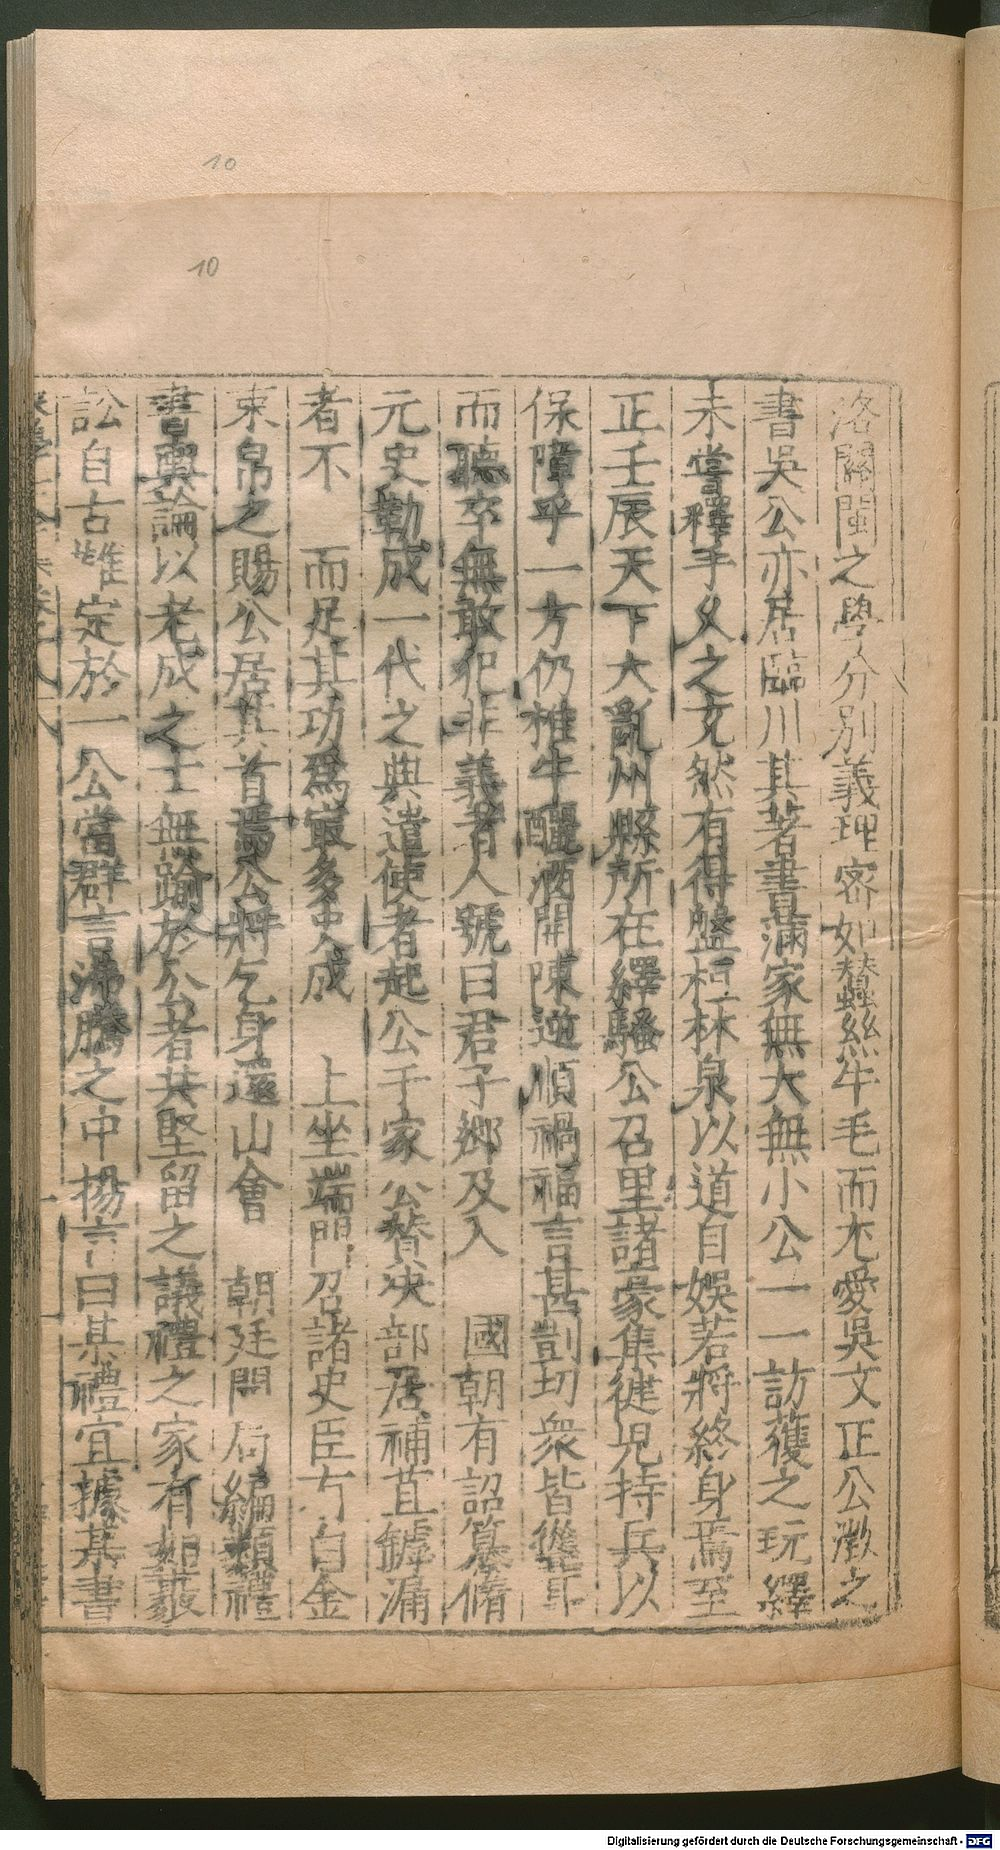 10
10
洛關閩之學分別義理密如蠶絲牛毛而尤愛吳文正公澂之
書吳公亦居臨川其著書滿家無大無小公一一訪獲之玩繹
未嘗釋手久之充然有得盤桓林泉以道自娛若將終身焉至
正壬辰天下大亂州縣所在繹騷公召里諸豪集徒兒持兵以
保障乎一方仍椎牛釃酒開陳逆順禍福言甚剴切衆皆聳耳
而聽卒無敢犯非義者人號曰君子鄉及入 國朝有詔纂脩
元史勒成一代之典遣使者起公于家公贊決部居補苴罅漏
者不 而足其功爲㝡多史成 上坐端門召諸史臣 白金
束帛之賜公居其首焉公將乞身還山會 朝廷開局編類禮
書輿論以老成之士無踰於公者共堅留之議禮之家有如聚
訟自古難定於一公當群言沸騰之中揚言曰某禮宜據某書
Digitalisierung gefördert durch die Deutsche Forschungsgemeinschaft - DFG